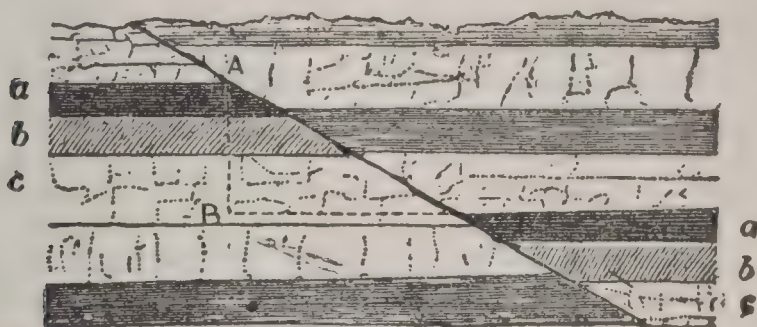 A
a
b
c
B
a
b
c